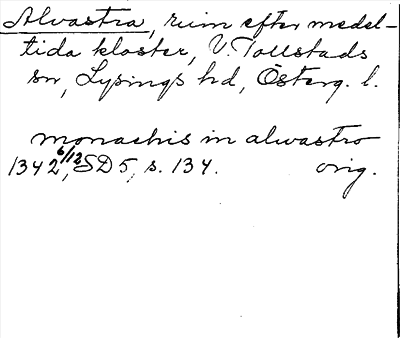 Alvastra, ruin efter medel-
tida kloster, V. Tollstads
sn, Lysings hd, Österg. l.
monachis in alwastro
1342 6/12, SD 5, s. 134. orig.